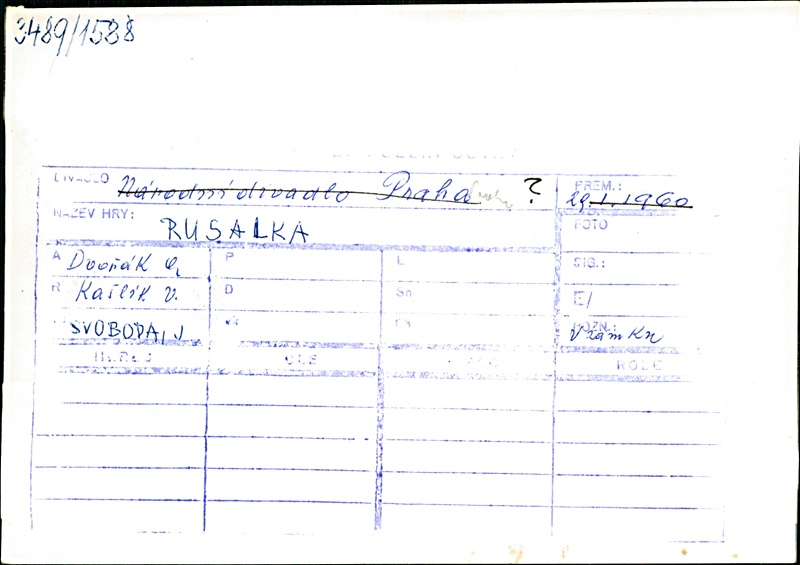 3489/1588
DIVADLO Národní divadlo Praha ? PREM.: 29.1.1960
NÁZEV HRY: RUSALKA FOTO
A Dvořák A. P L SIG.:
R Kašlík V. D Sn E/
SVOBODA, J POZN.: V rámku
ROLE